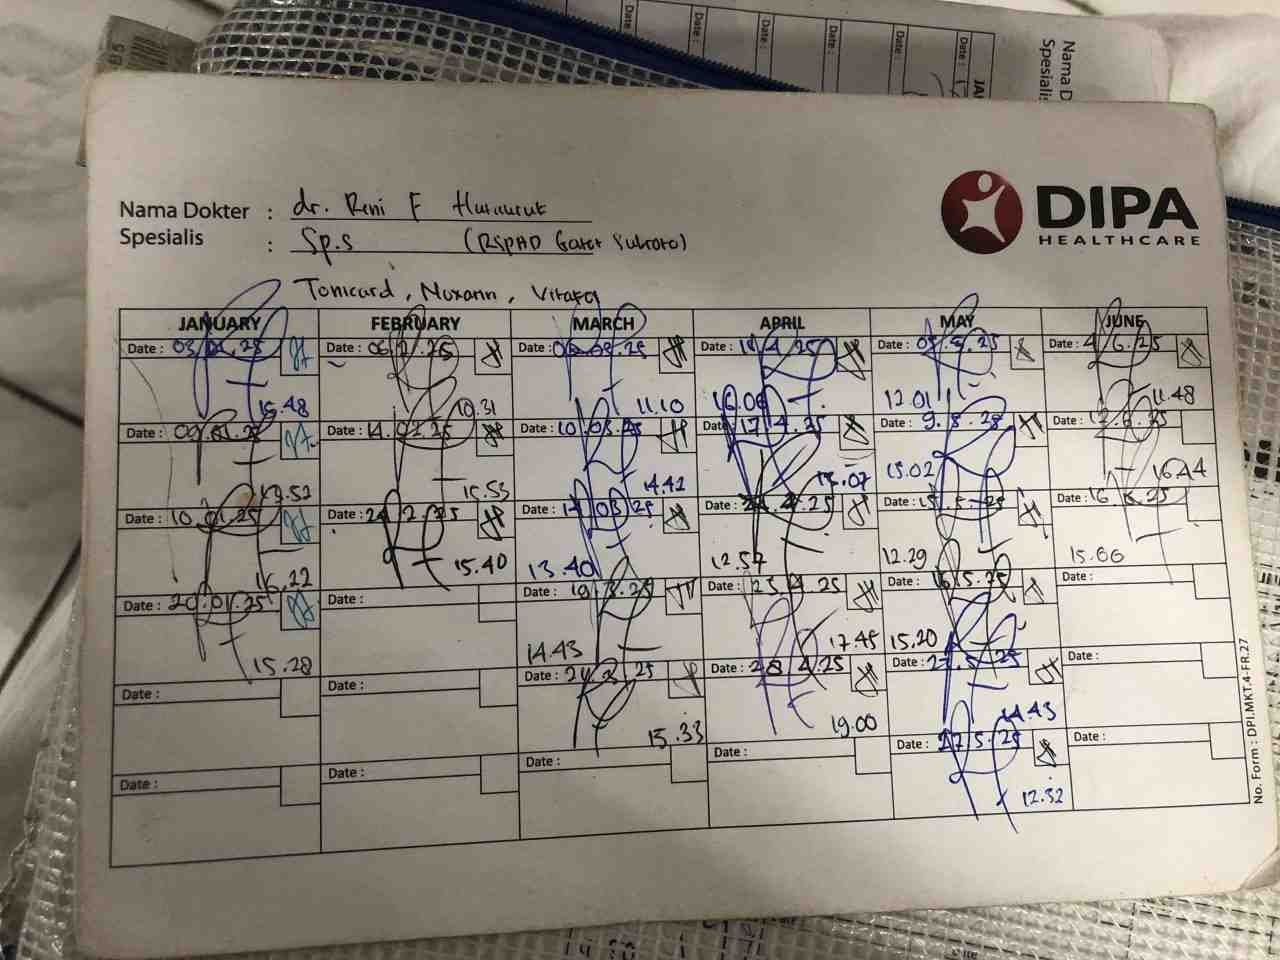 Date :
Date :
Date :
Date :
Date :
Date :
JA
Nama D
Spesialis
Nama Dokter : dr. Reni F Hutauruk
Spesialis : Sp.S (RSPAD Gatot Subroto)
DIPA
HEALTHCARE
Tonicard,
JANUARY FEBRUARY MARCH APRIL MAY JUNE
Date : 03.01.25 Date : 06.2.25 Date : .25 Date : .4.25 Date : .25 Date : 4.6.25
15.48 10.31 11.10 16.06 12.01 11.48
Date : .01.25 Date : 14.02.25 Date : 10.03.25 Date : 17.4.25 Date : Date : 12.6.25
.52 15.53 14.42 15.07 15.02 16.44
Date : 10.01.25 Date : .2.25 Date : .03.25 Date : .4.25 Date : 15.5.25 Date : 16. .25
16.22 15.40 13.40 12.57 12.29 15.06
Date : 20.01.25 Date : Date : 19.3.25 Date : 25.4.25 Date : 16.5.25 Date :
15.28 14.43 17.45 15.20
Date : Date : Date : 24.3.25 Date : 28.4.25 Date : .5.25 Date :
15.33 19.00 14.43
Date : Date : Date : Date : Date : 27.5.25 Date :
12.32
No. Form : DPI.MKT.4-FR.27